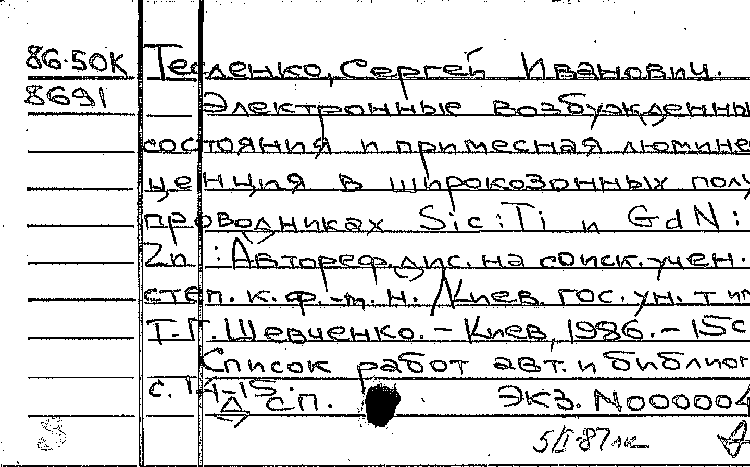 86-50К Тесленко, Сергей Иванович.
8691 Электронные возбужденны
состояния и примесная люмине
ценция в широкозонных полу
проводниках Sic:Ti и GdN:
Zn : Автореф. дис. на соиск. учен.
степ. к. ф.-м. н. / Киев. гос. ун. т им
Т. Г. Шевченко. - Киев, 1986. - 15с
Список работ авт. и библиог
с. 14-15.
Д СП. ЭКЗ. N000004